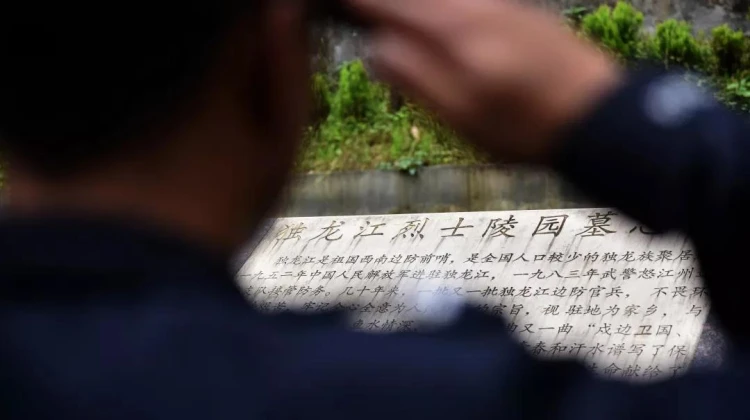 独龙江烈士陵园墓志
独龙江是祖国西南边防前哨，是全国人口较少的独龙族聚居
一九五二年中国人民解放军进驻独龙江，一九八三年武警怒江州
队接管防务，几十年来，一批又一批独龙江边防官兵，不畏
全意为人 宗旨，视驻地为家乡，与
水情深 曲又一曲“戍边卫国、
春和汗水谱写了保
命献给了